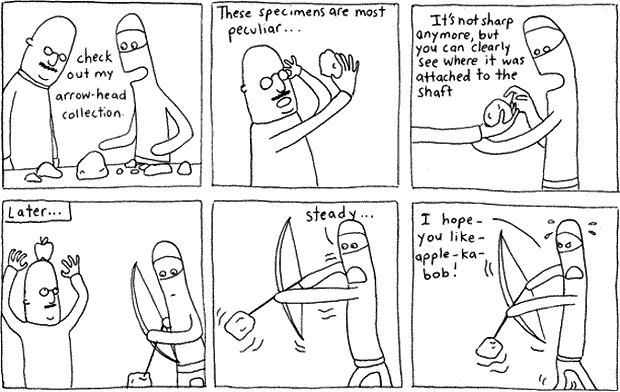 check
out my
arrow-head
collection.
These specimens are most
peculiar...
It's not sharp
anymore, but
you can clearly
see where it was
attached to the
shaft
Later...
steady...
I hope-
you like-
apple-ka-
bob!